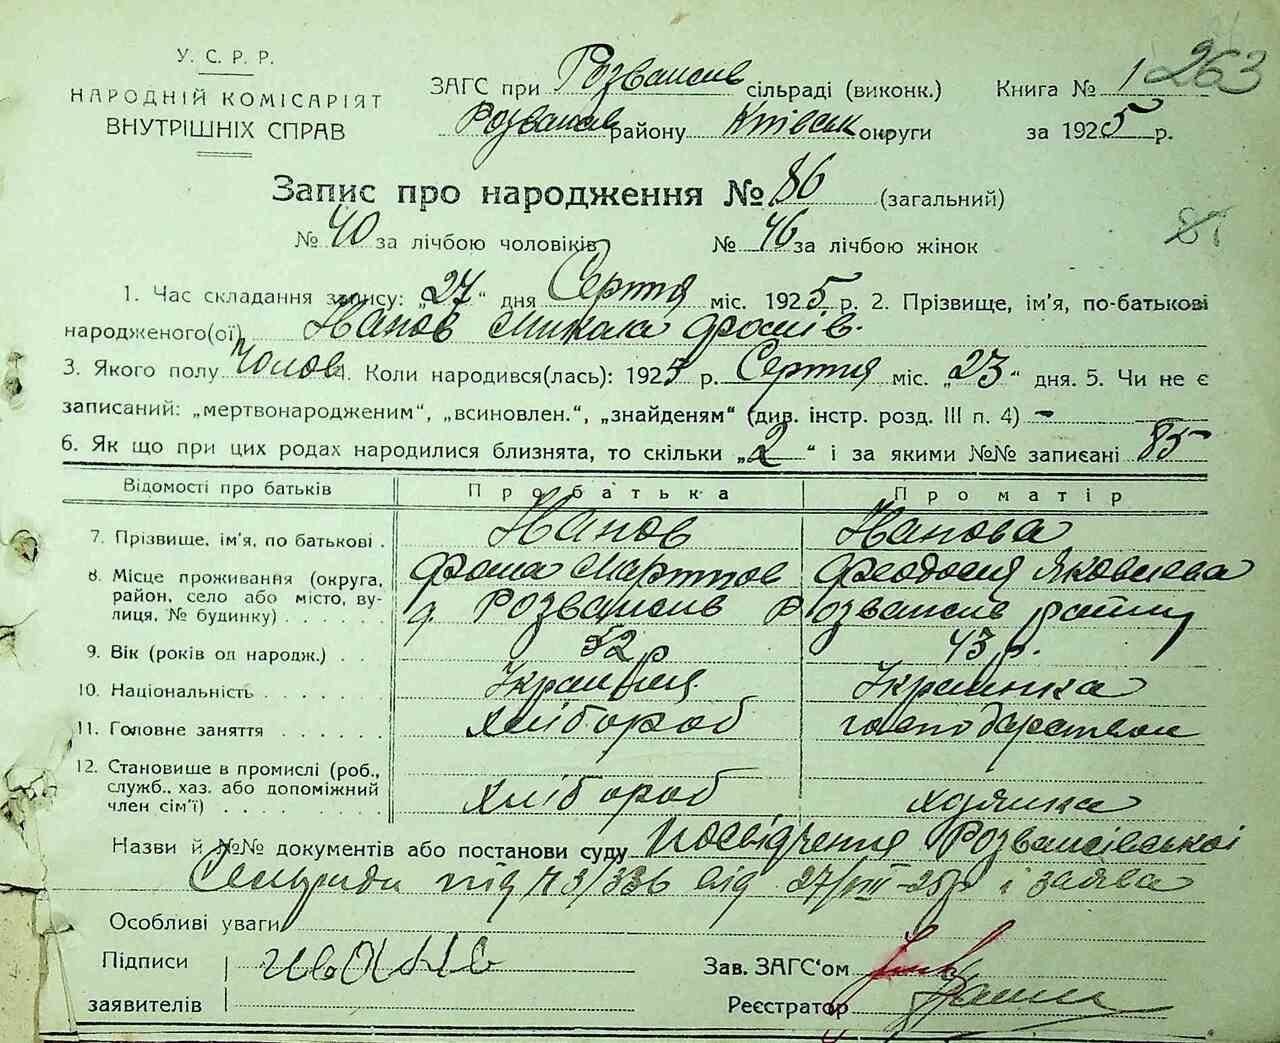 263
У. С. Р. Р.
НАРОДНІЙ КОМІСАРІЯТ
ВНУТРІШНІХ СПРАВ
ЗАГС при Розважив сільраді (виконк.) Книга № 1
Розважив району Київськ округи за 1925 р.
Запис про народження № 86 (загальний)
№ 40 за лічбою чоловіків № 46 за лічбою жінок
1. Час складання запису: „27“ дня Серпня міс. 1925 р. 2. Прізвище, ім'я, по-батькові
народженого(ої) Иванов Микола Фомів.
3. Якого полу Чолов 4. Коли народився(лась): 1925 р. Серпня міс. „23“ дня. 5. Чи не є
записаний: „мертвонародженим“, „всиновлен.“, „знайденям“ (див. інстр. розд. III п. 4) -
6. Як що при цих родах народилися близнята, то скільки „2“ і за якими №№ записані 85
Відомості про батьків Про батька Про матір
7. Прізвище, ім'я, по батькові . Иванов Иванова
Фома Мартинов Феодосия Яковлева
8. Місце проживання (округа,
район, село або місто, ву-
лиця, № будинку) . . . . . . Розважив Розважив району
9. Вік (років од народж.) . . 52 р 43 р.
10. Національність . . . . . . . Українець Українка
11. Головне заняття . . . . . . Хлібороб господарством
12. Становище в промислі (роб.,
служб., хаз. або допоміжний
член сім'ї) . . . . . . . . Хлібороб хозяйка
Назви й №№ документів або постанови суду Посвідчення Розважівської
Сельради під № 3/336 від 27/VIII-25р і заява
Особливі уваги
Підписи ивание Зав. ЗАГС'ом
заявителів Реєстратор